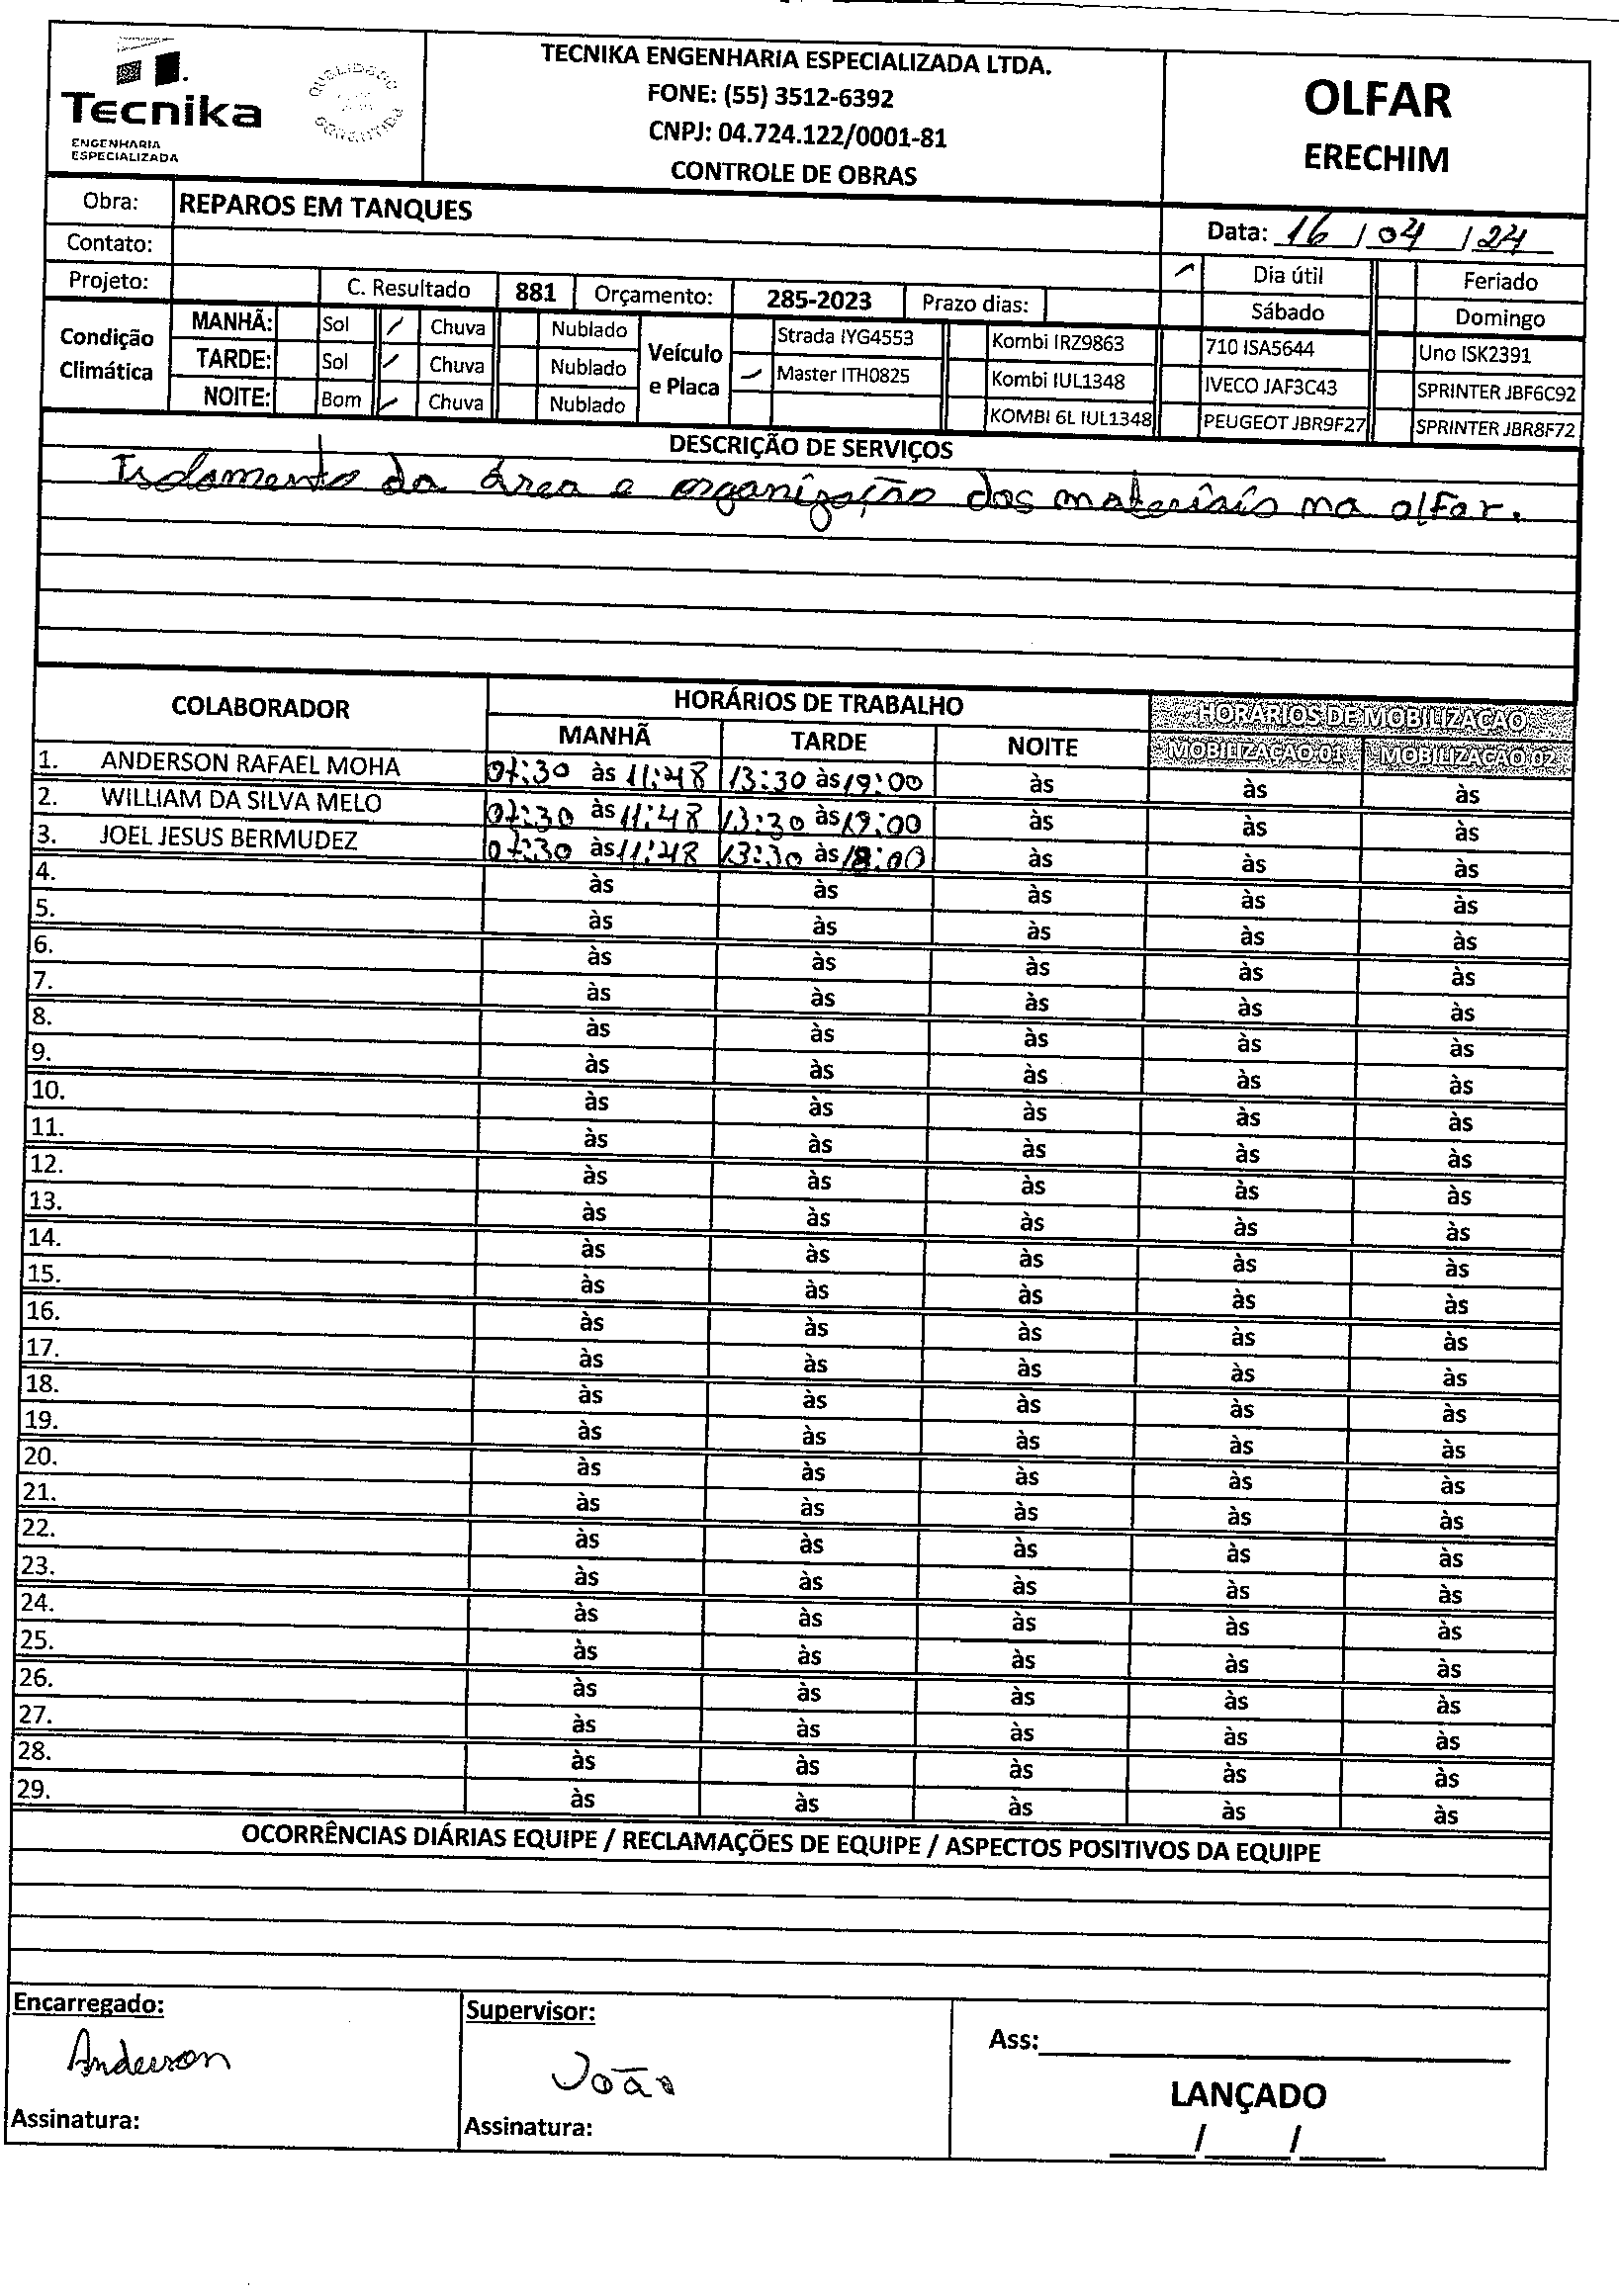 Tecnika
ENGENHARIA
ESPECIALIZADA
QUALIDADE
TECNIKA ENGENHARIA ESPECIALIZADA LTDA.
FONE: (55) 3512-6392
CNPJ: 04.724.122/0001-81
CONTROLE DE OBRAS
OLFAR
ERECHIM
Obra: REPAROS EM TANQUES
Data: 16 / 04 / 24
Contato:
Projeto: C. Resultado 881 Orçamento: 285-2023 Prazo dias:
/ Dia útil Feriado
Sábado Domingo
Condição Climática
MANHÃ: Sol / Chuva Nublado
TARDE: Sol / Chuva Nublado
NOITE: Bom / Chuva Nublado
Veículo e Placa
Strada IYG4553 Kombi IRZ9863 710 ISA5644 Uno ISK2391
/ Master ITH0825 Kombi IUL1348 IVECO JAF3C43 SPRINTER JBF6C92
KOMBI 6L IUL1348 PEUGEOT JBR9F27 SPRINTER JBR8F72
DESCRIÇÃO DE SERVIÇOS
Isolamento da área e organização dos materiais na olfar.
COLABORADOR HORÁRIOS DE TRABALHO HORÁRIOS DE MOBILIZAÇÃO
MANHÃ TARDE NOITE MOBILIZAÇÃO 01 MOBILIZAÇÃO 02
1. ANDERSON RAFAEL MOHA 07:30 às 11:48 13:30 às 19:00 às às às
2. WILLIAM DA SILVA MELO 07:30 às 11:48 13:30 às 19:00 às às às
3. JOEL JESUS BERMUDEZ 07:30 às 11:48 13:30 às 18:00 às às às
4. às às às às às
5. às às às às às
6. às às às às às
7. às às às às às
8. às às às às às
9. às às às às às
10. às às às às às
11. às às às às às
12. às às às às às
13. às às às às às
14. às às às às às
15. às às às às às
16. às às às às às
17. às às às às às
18. às às às às às
19. às às às às às
20. às às às às às
21. às às às às às
22. às às às às às
23. às às às às às
24. às às às às às
25. às às às às às
26. às às às às às
27. às às às às às
28. às às às às às
29. às às às às às
OCORRÊNCIAS DIÁRIAS EQUIPE / RECLAMAÇÕES DE EQUIPE / ASPECTOS POSITIVOS DA EQUIPE
Encarregado:
Anderson
Assinatura:
Supervisor:
João
Assinatura:
Ass:
LANÇADO
/ /